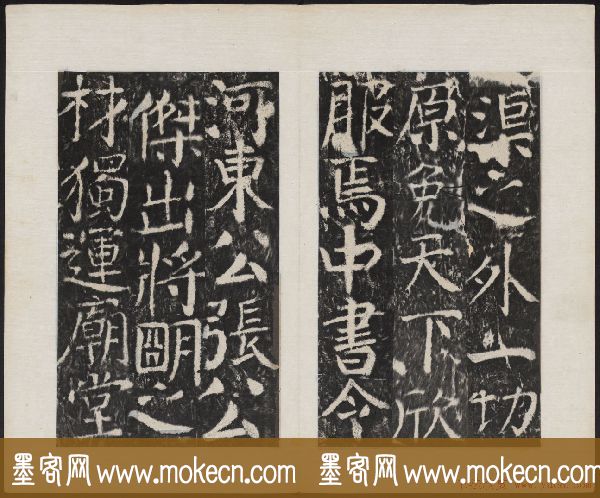 渠之外一切
原免天下欣
服焉中書令
河東公張公
傑出將明之
材獨運廟堂
墨客网 www.mokecn.com 墨客网 www.mokecn.com